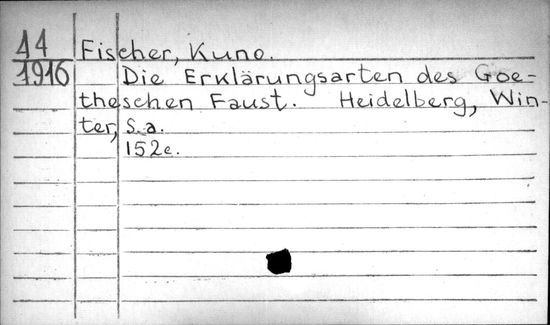 44 Fischer, Kuno.
1916 Die Erklärungsarten des Goe-
theschen Faust. Heidelberg, Win-
ter, S.a.
152c.